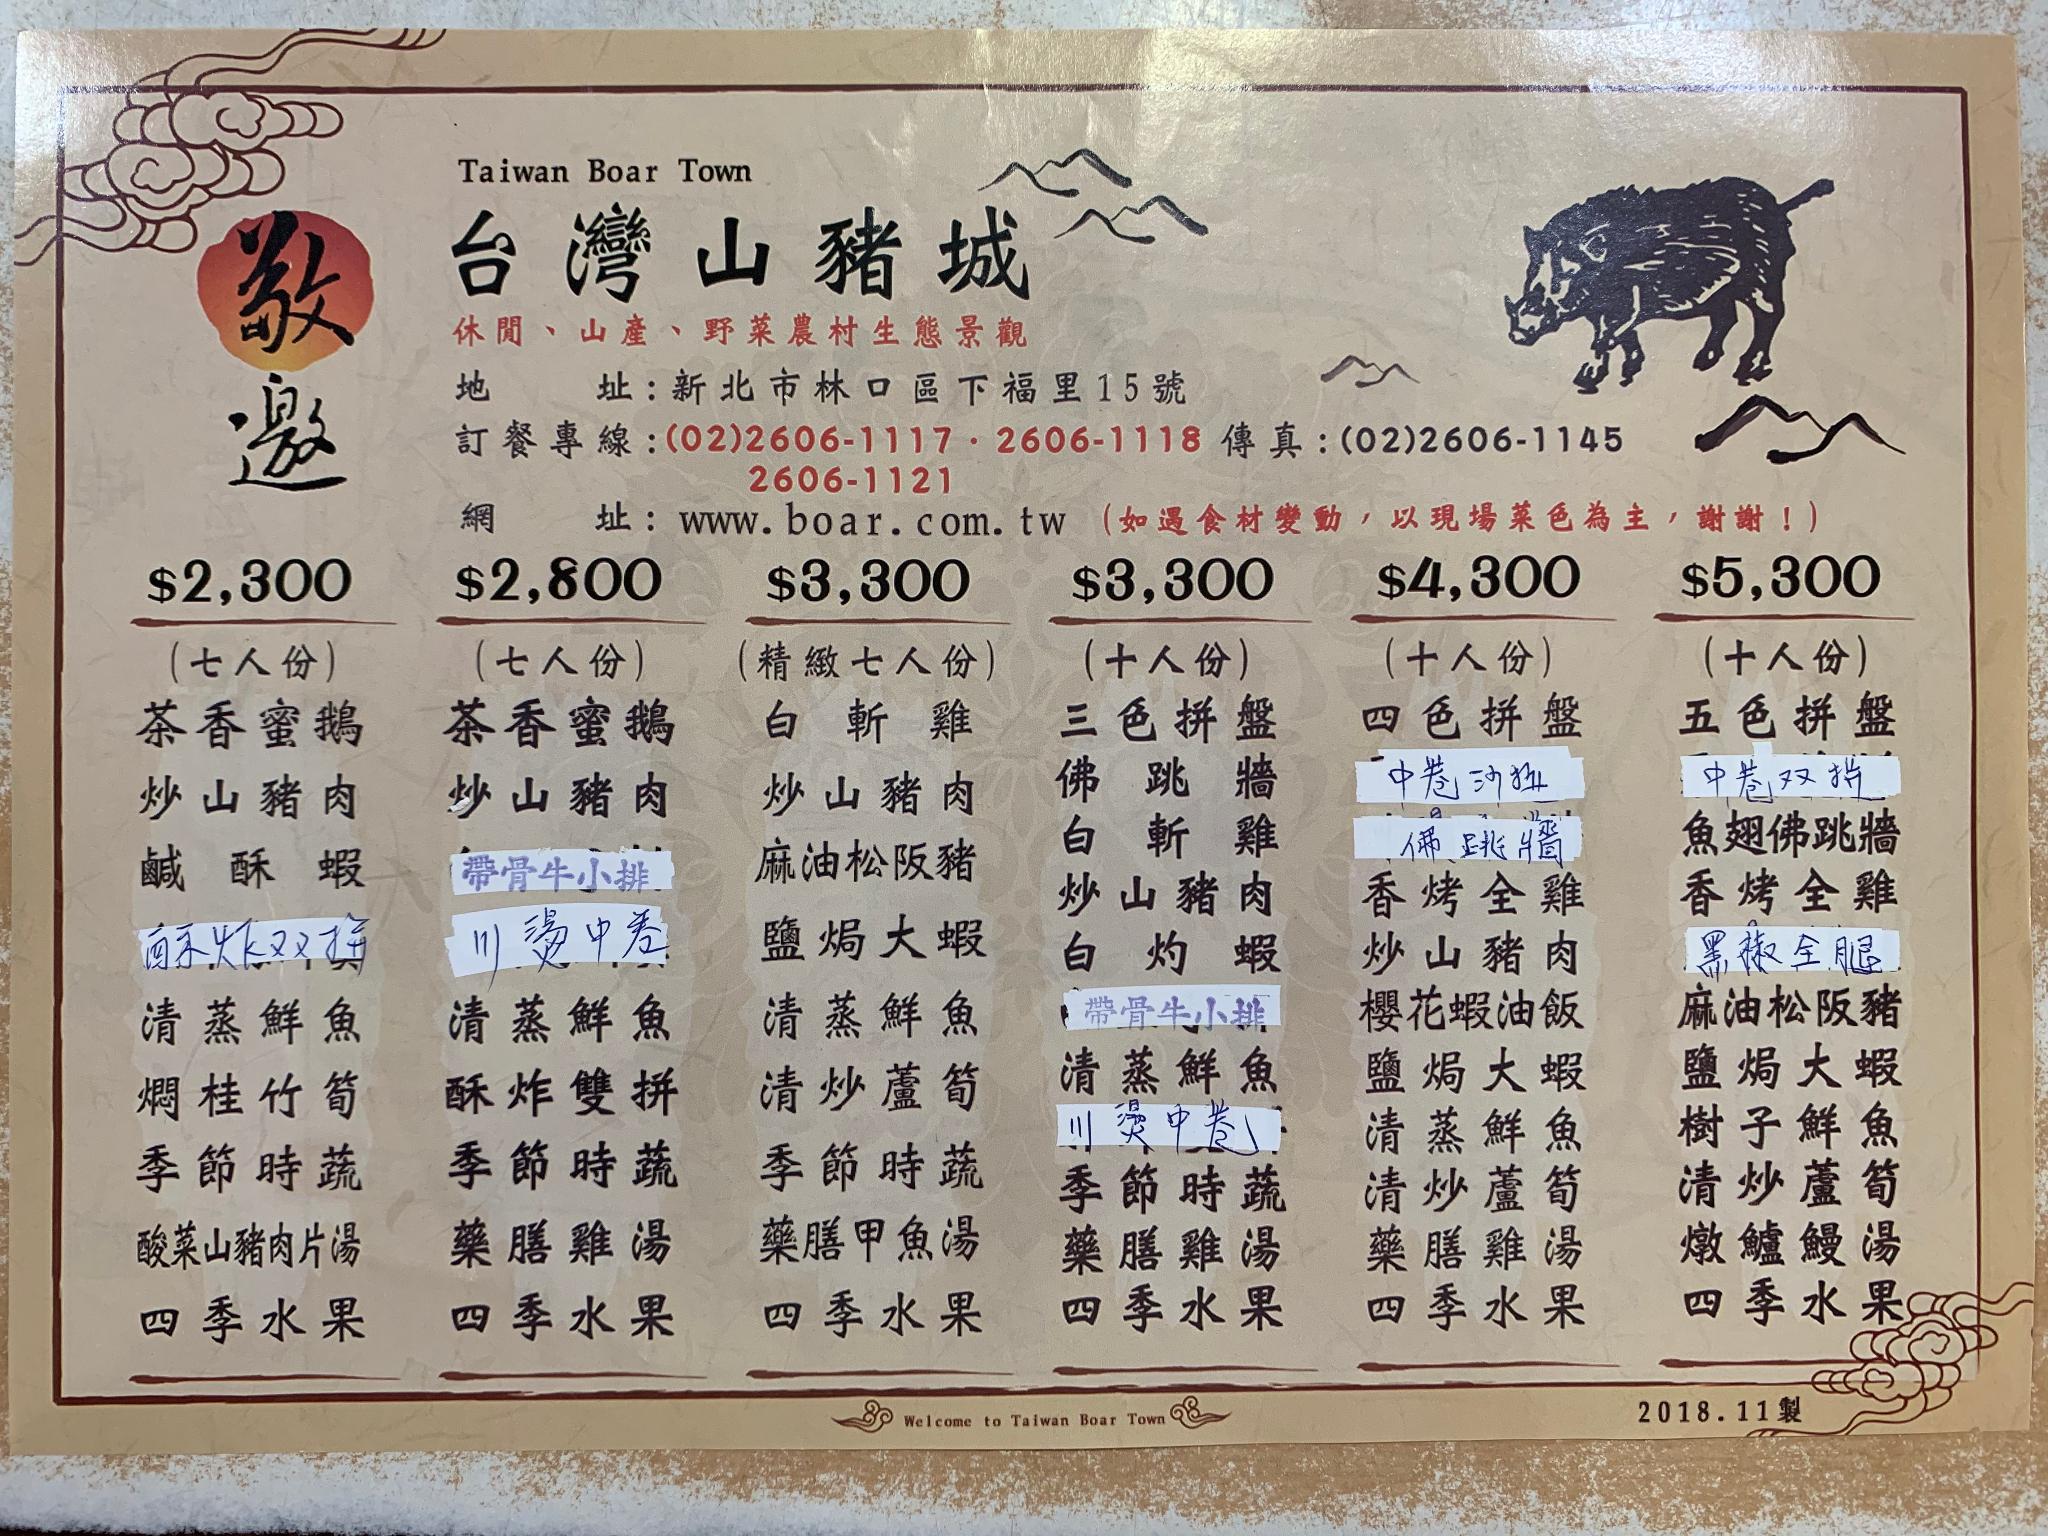 敬邀
Taiwan Boar Town
台灣山豬城
休閒、山產、野菜農村生態景觀
地址:新北市林口區下福里15號
訂餐專線:(02)2606-1117·2606-1118 傳真:(02)2606-1145
2606-1121
網址:www.boar.com.tw (如遇食材變動,以現場菜色為主,謝謝!)
$2,300
(七人份)
茶香蜜鵝
炒山豬肉
鹹酥蝦
酥炸双拼
清蒸鮮魚
燜桂竹筍
季節時蔬
酸菜山豬肉片湯
四季水果
$2,800
(七人份)
茶香蜜鵝
炒山豬肉
帶骨牛小排
川燙中卷
清蒸鮮魚
酥炸雙拼
季節時蔬
藥膳雞湯
四季水果
$3,300
(精緻七人份)
白斬雞
炒山豬肉
麻油松阪豬
鹽焗大蝦
清蒸鮮魚
清炒蘆筍
季節時蔬
藥膳甲魚湯
四季水果
$3,300
(十人份)
三色拼盤
佛跳牆
白斬雞
炒山豬肉
白灼蝦
帶骨牛小排
清蒸鮮魚
川燙中卷
季節時蔬
藥膳雞湯
四季水果
$4,300
(十人份)
四色拼盤
中卷沙拉
佛跳牆
香烤全雞
炒山豬肉
櫻花蝦油飯
鹽焗大蝦
清蒸鮮魚
清炒蘆筍
藥膳雞湯
四季水果
$5,300
(十人份)
五色拼盤
中卷双拼
魚翅佛跳牆
香烤全雞
黑椒全腿
麻油松阪豬
鹽焗大蝦
樹子鮮魚
清炒蘆筍
燉鱸鰻湯
四季水果
Welcome to Taiwan Boar Town
2018.11製